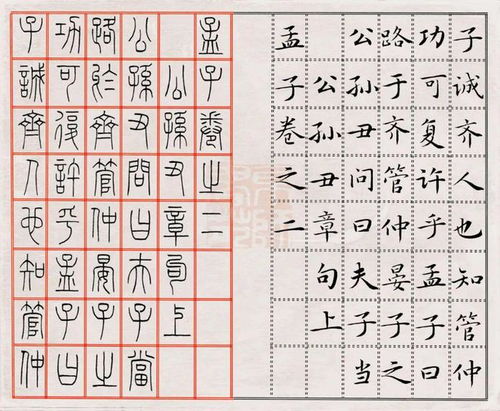 孟子卷之二
公孫丑章句上
公孫丑問曰夫子當
路於齊管仲晏子之
功可復許乎孟子曰
子誠齊人也知管仲
孟子卷之二
公孙丑章句上
公孙丑问曰夫子当
路于齐管仲晏子之
功可复许乎孟子曰
子诚齐人也知管仲